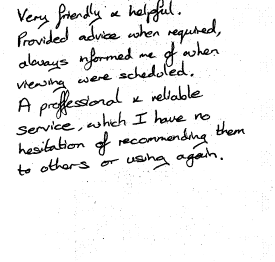 Very friendly & helpful.
Provided advice when required,
always informed me of when
viewing were scheduled.
A proffessional & reliable
service, which I have no
hesitation of recommending them
to others or using again.